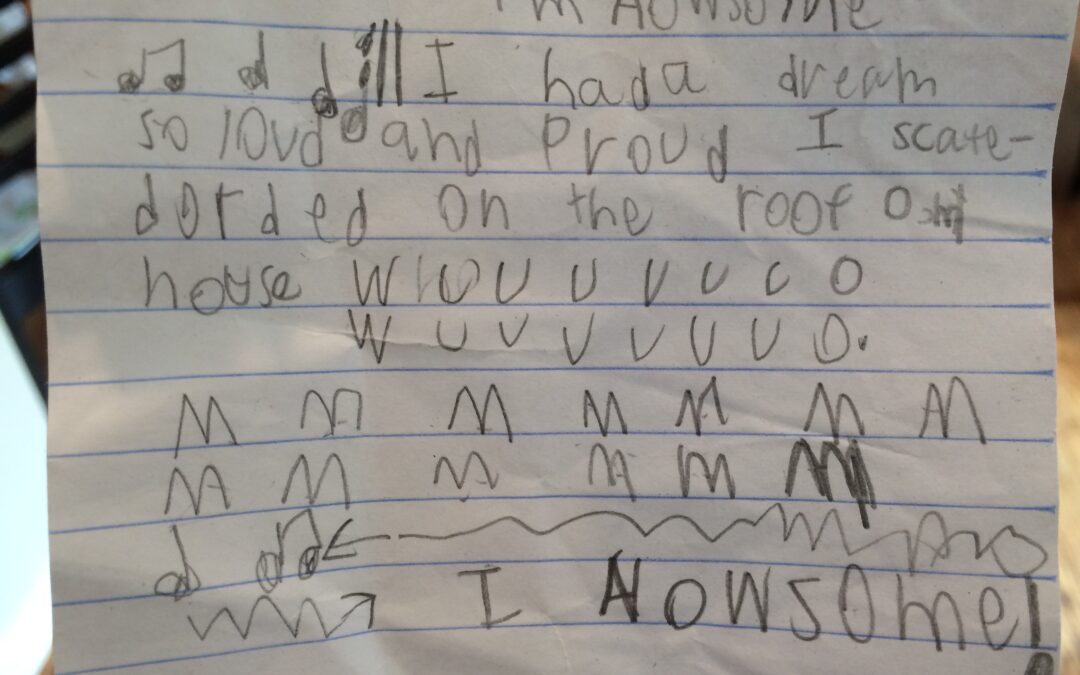 I'm Aowsome
I had a dream
so loud and Proud I scate-
dorded on the roof O
house W U U U U U C O
W U U U U U U O.
M M M M M M M
M M M M M M
I Aowsome!